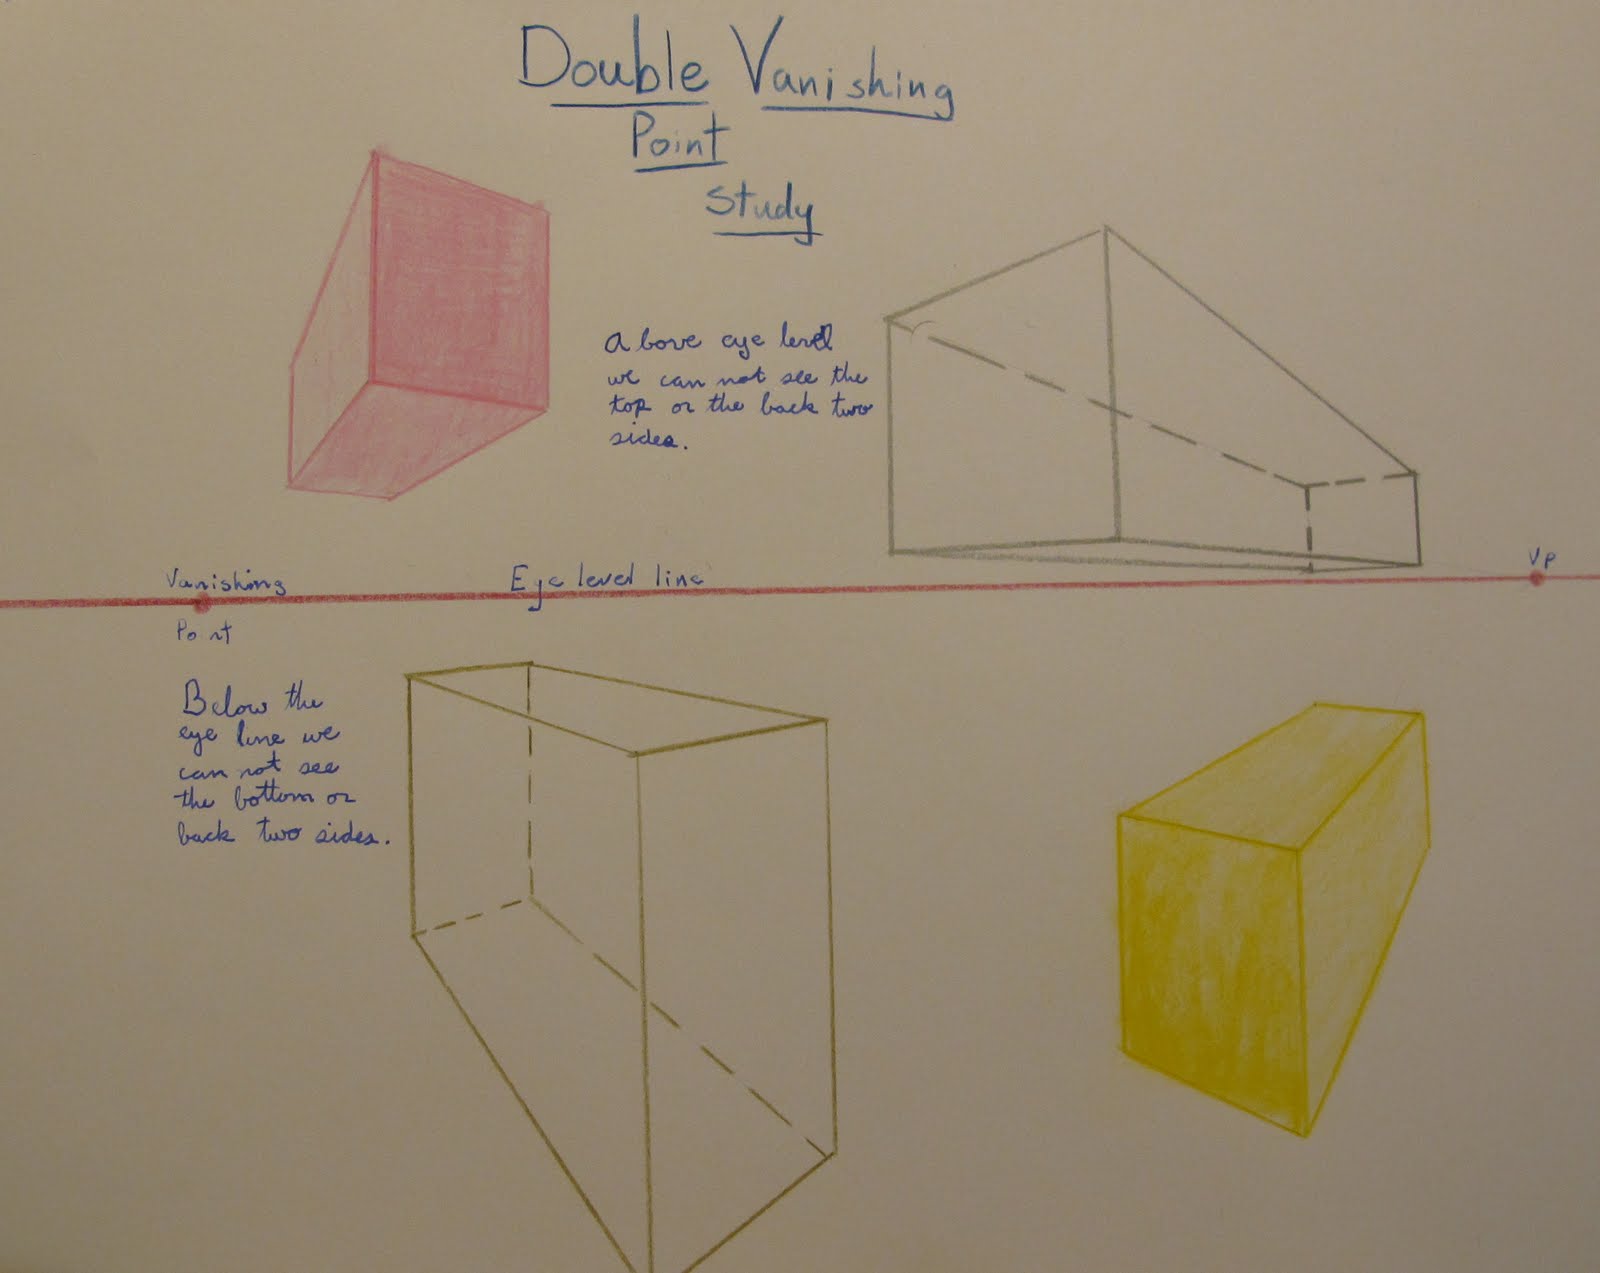 Double Vanishing
Point
Study
Above eye level
we can not see the
top or the back two
sides.
Vanishing
Point
Eye level line
VP
Below the
eye line we
can not see
the bottom or
back two sides.